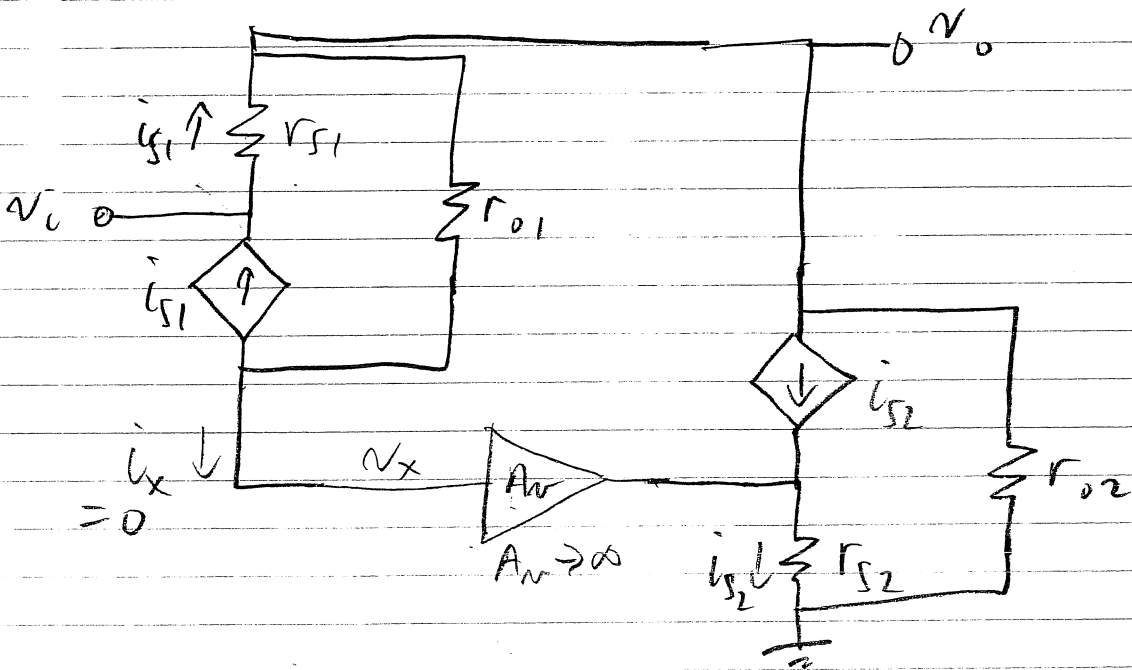 v₀
i_s1 ↑ r_s1
v_i
r_o1
i_s1 ↑
↓ i_s2
i_x ↓ v_x A_v r_o2
= 0
A_v → ∞ i_s2 ↓ r_s2